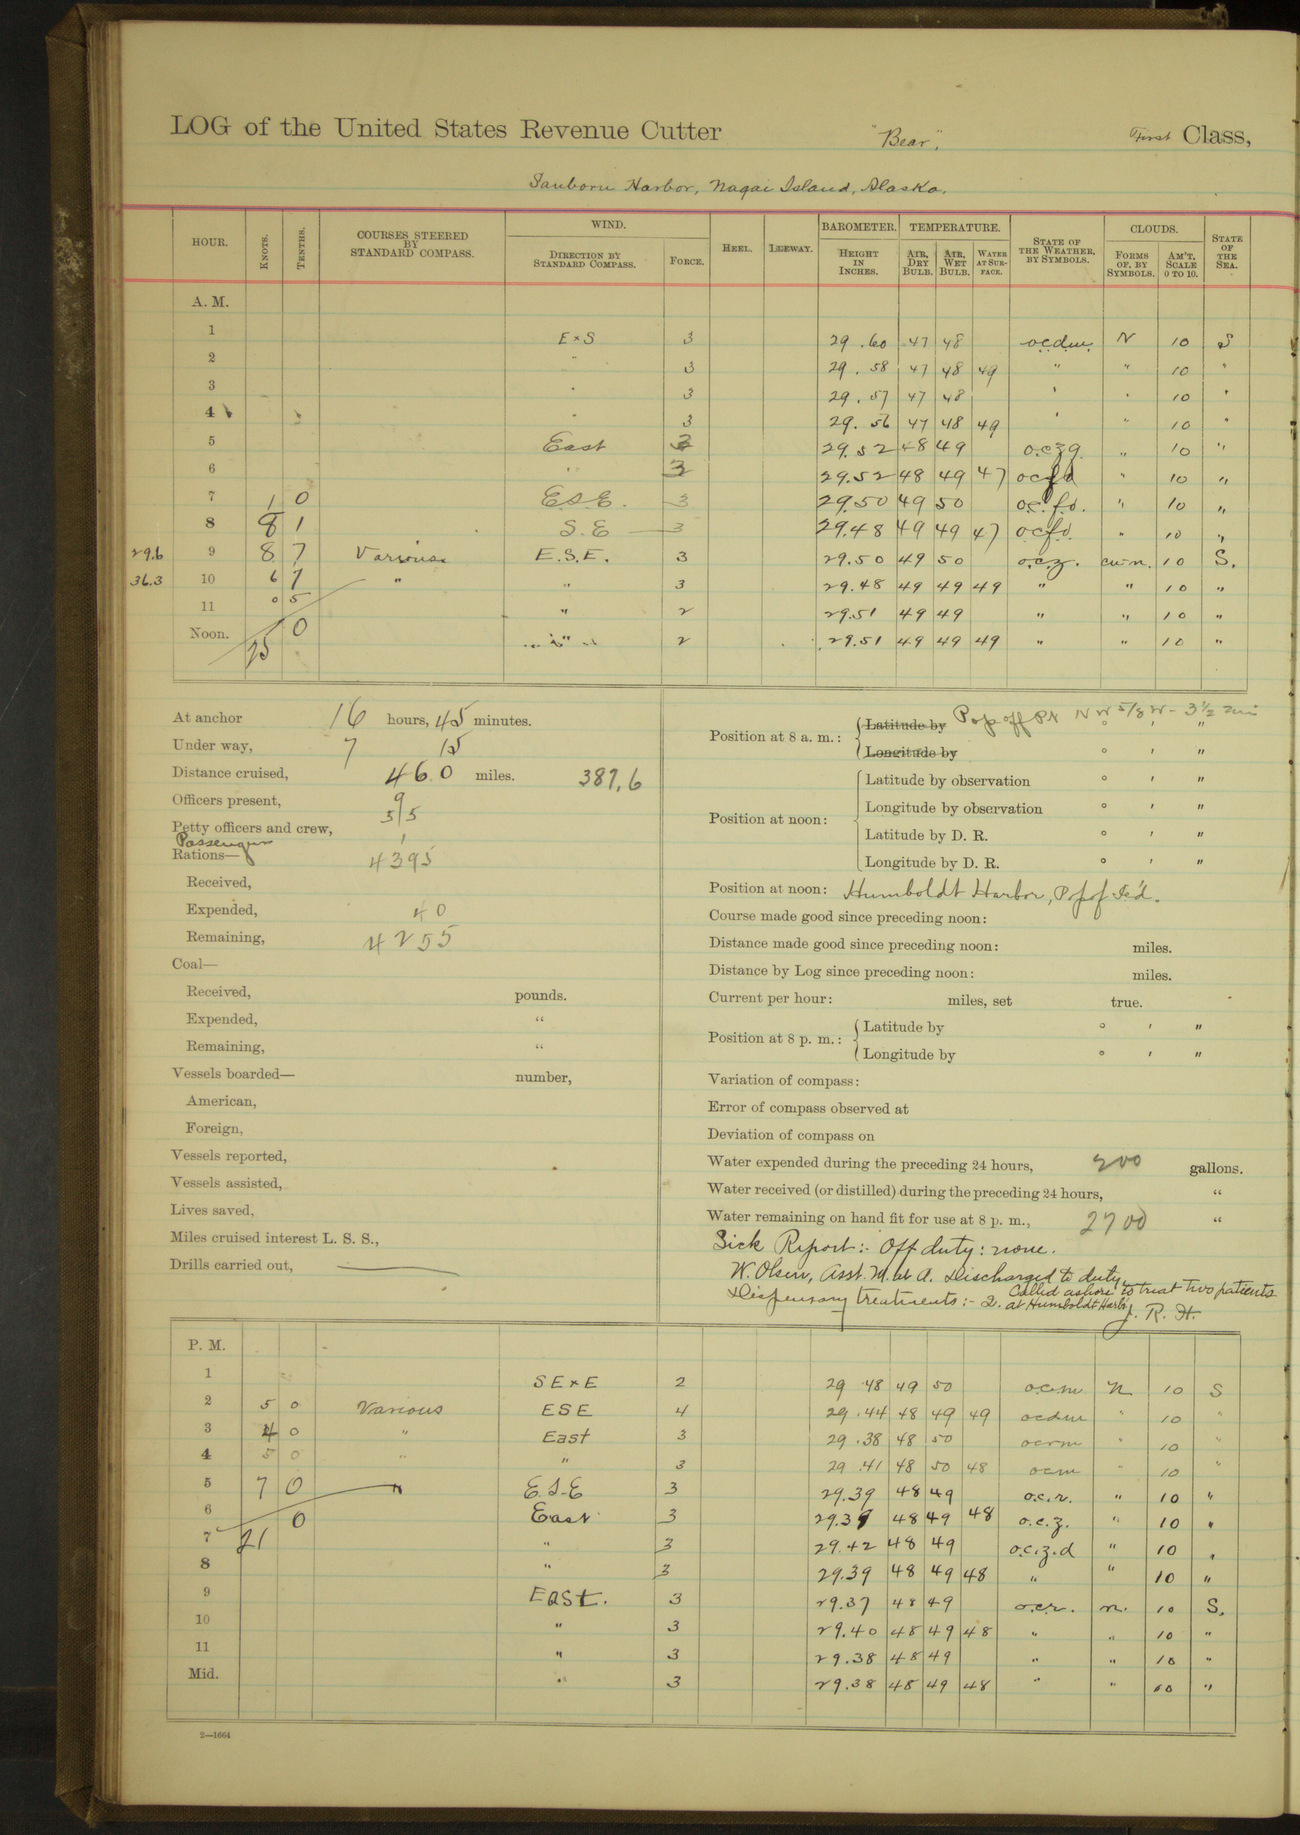 LOG of the United States Revenue Cutter "Bear", First Class,
Sanborn Harbor, Nagai Island, Alaska.
HOUR. KNOTS. TENTHS. COURSES STEERED BY STANDARD COMPASS. WIND. DIRECTION BY STANDARD COMPASS. FORCE. HEEL. LEEWAY. BAROMETER. HEIGHT IN INCHES. TEMPERATURE. AIR, DRY BULB. AIR, WET BULB. WATER AT SURFACE. STATE OF THE WEATHER, BY SYMBOLS. CLOUDS. FORMS OF, BY SYMBOLS. AM'T, SCALE 0 TO 10. STATE OF THE SEA.
A. M.
1 E x S 3 29.60 47 48 o.c.d.m. N 10 S
2 " 3 29.58 47 48 49 " " 10 "
3 " 3 29.57 47 48 " " 10 "
4 " 3 29.56 47 48 49 " " 10 "
5 East 3 29.52 48 49 o.c.z.g. " 10 "
6 " 3 29.52 48 49 47 " 10 "
7 1 0 E.S.E. 3 29.50 49 50 o.c.f.d. " 10 "
8 8 1 S.E 3 29.48 49 49 47 o.c.f.d. " 10 "
29.6 9 8 7 Various E.S.E. 3 29.50 49 50 o.c.z. cu-n. 10 S.
36.3 10 6 7 " " 3 29.48 49 49 49 " " 10 "
11 0 5 " 2 29.51 49 49 " " 10 "
Noon. 0 " 2 29.51 49 49 49 " " 10 "
25
At anchor 16 hours, 45 minutes.
Under way, 7 15
Distance cruised, 46.0 miles. 387.6
Officers present, 9
Petty officers and crew, 35
Passenger 1
Rations— 4395
Received,
Expended, 40
Remaining, 4255
Coal—
Received, pounds.
Expended, "
Remaining, "
Vessels boarded— number,
American,
Foreign,
Vessels reported,
Vessels assisted,
Lives saved,
Miles cruised interest L. S. S.,
Drills carried out,
Position at 8 a. m.: Latitude by Popoff Pt N W 5/8 W - 3 1/2 mi ° ' "
Longitude by ° ' "
Position at noon: Latitude by observation ° ' "
Longitude by observation ° ' "
Latitude by D. R. ° ' "
Longitude by D. R. ° ' "
Position at noon: Humboldt Harbor, Popof Is'd.
Course made good since preceding noon:
Distance made good since preceding noon: miles.
Distance by Log since preceding noon: miles.
Current per hour: miles, set true.
Position at 8 p. m.: Latitude by ° ' "
Longitude by ° ' "
Variation of compass:
Error of compass observed at
Deviation of compass on
Water expended during the preceding 24 hours, 200 gallons.
Water received (or distilled) during the preceding 24 hours, "
Water remaining on hand fit for use at 8 p. m., 2700 "
Sick Report:- Off duty: none.
W. Olsen, Asst. M. at A. Discharged to duty.
Dispensary treatments:- 2. Called ashore to treat two patients
at Humboldt Harb'r J. R. H.
P. M.
1 SE x E 2 29 48 49 50 o.c.m N 10 S
2 5 0 Various ESE 4 29.44 48 49 49 ocdm " 10 "
3 4 0 " East 3 29.38 48 50 ocrm " 10 "
4 5 0 " " 3 29.41 48 50 48 ocm " 10 "
5 7 0 " E.S.E 3 29.39 48 49 o.c.r. " 10 "
6 0 East 3 48 49 48 o.c.z. " 10 "
7 21 " 3 29.42 48 49 o.c.z.d " 10 "
8 " 3 29.39 48 49 48 " " 10 "
9 EAST. 3 29.37 48 49 o.c.r. n. 10 S.
10 " 3 29.40 48 49 48 " " 10 "
11 " 3 29.38 48 49 " " 10 "
Mid. " 3 29.38 48 49 48 " " 10 "
2—1664